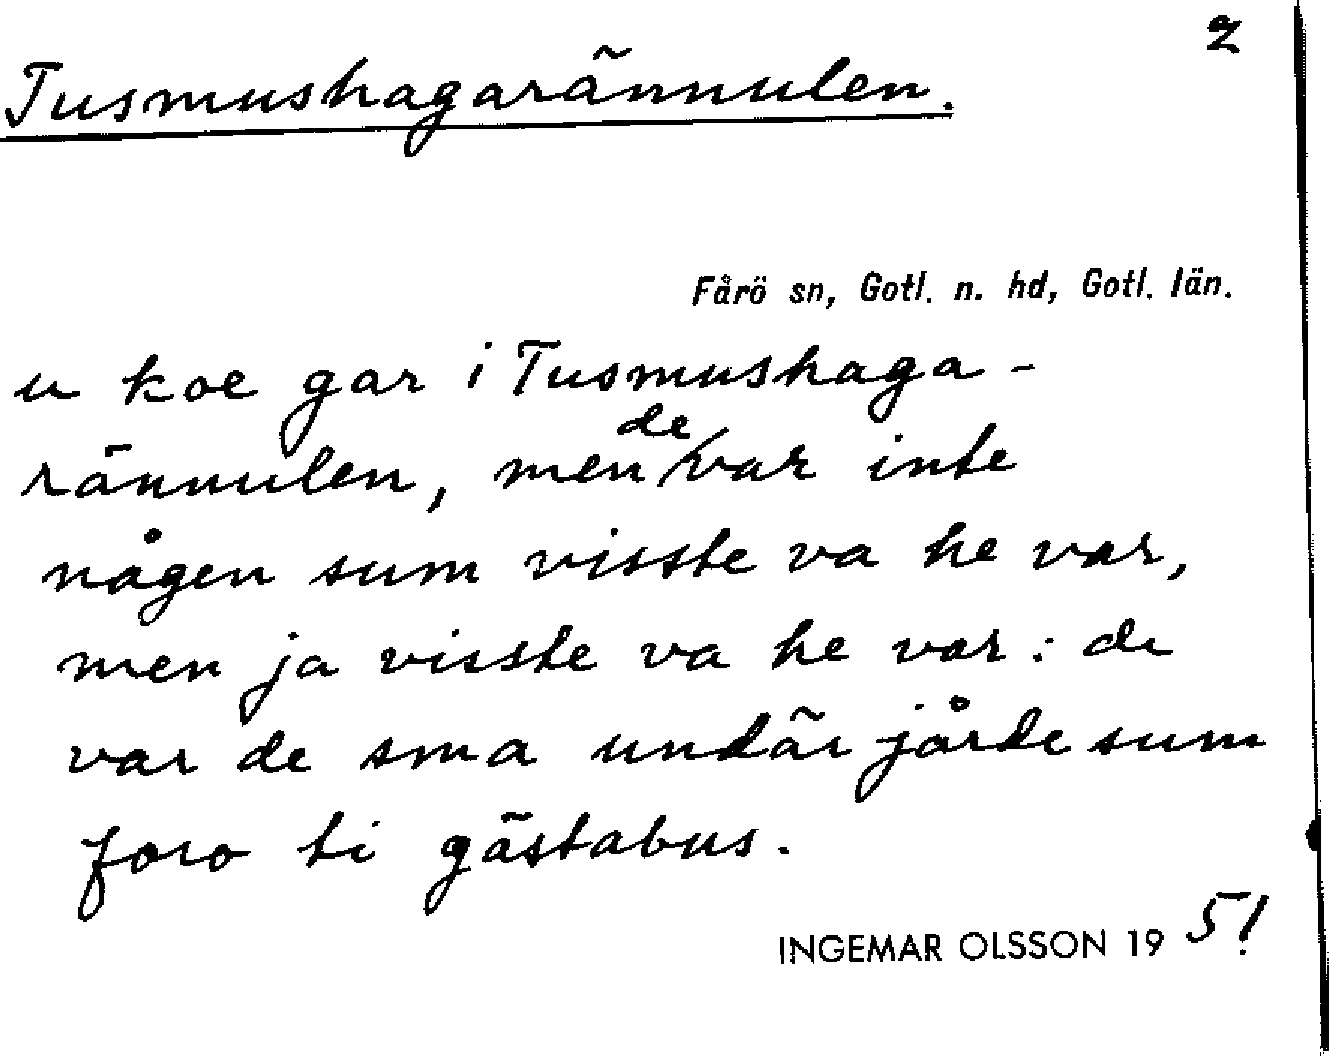 2
Tusmushagarännulen.
Fårö sn, Gotl. n. hd, Gotl. län.
u koe gar i Tusmushaga-
rännulen, men de var inte
någen sum visste va he var,
men ja visste va he var: de
var de sma undär jårde sum
foro ti gästabus.
INGEMAR OLSSON 1951